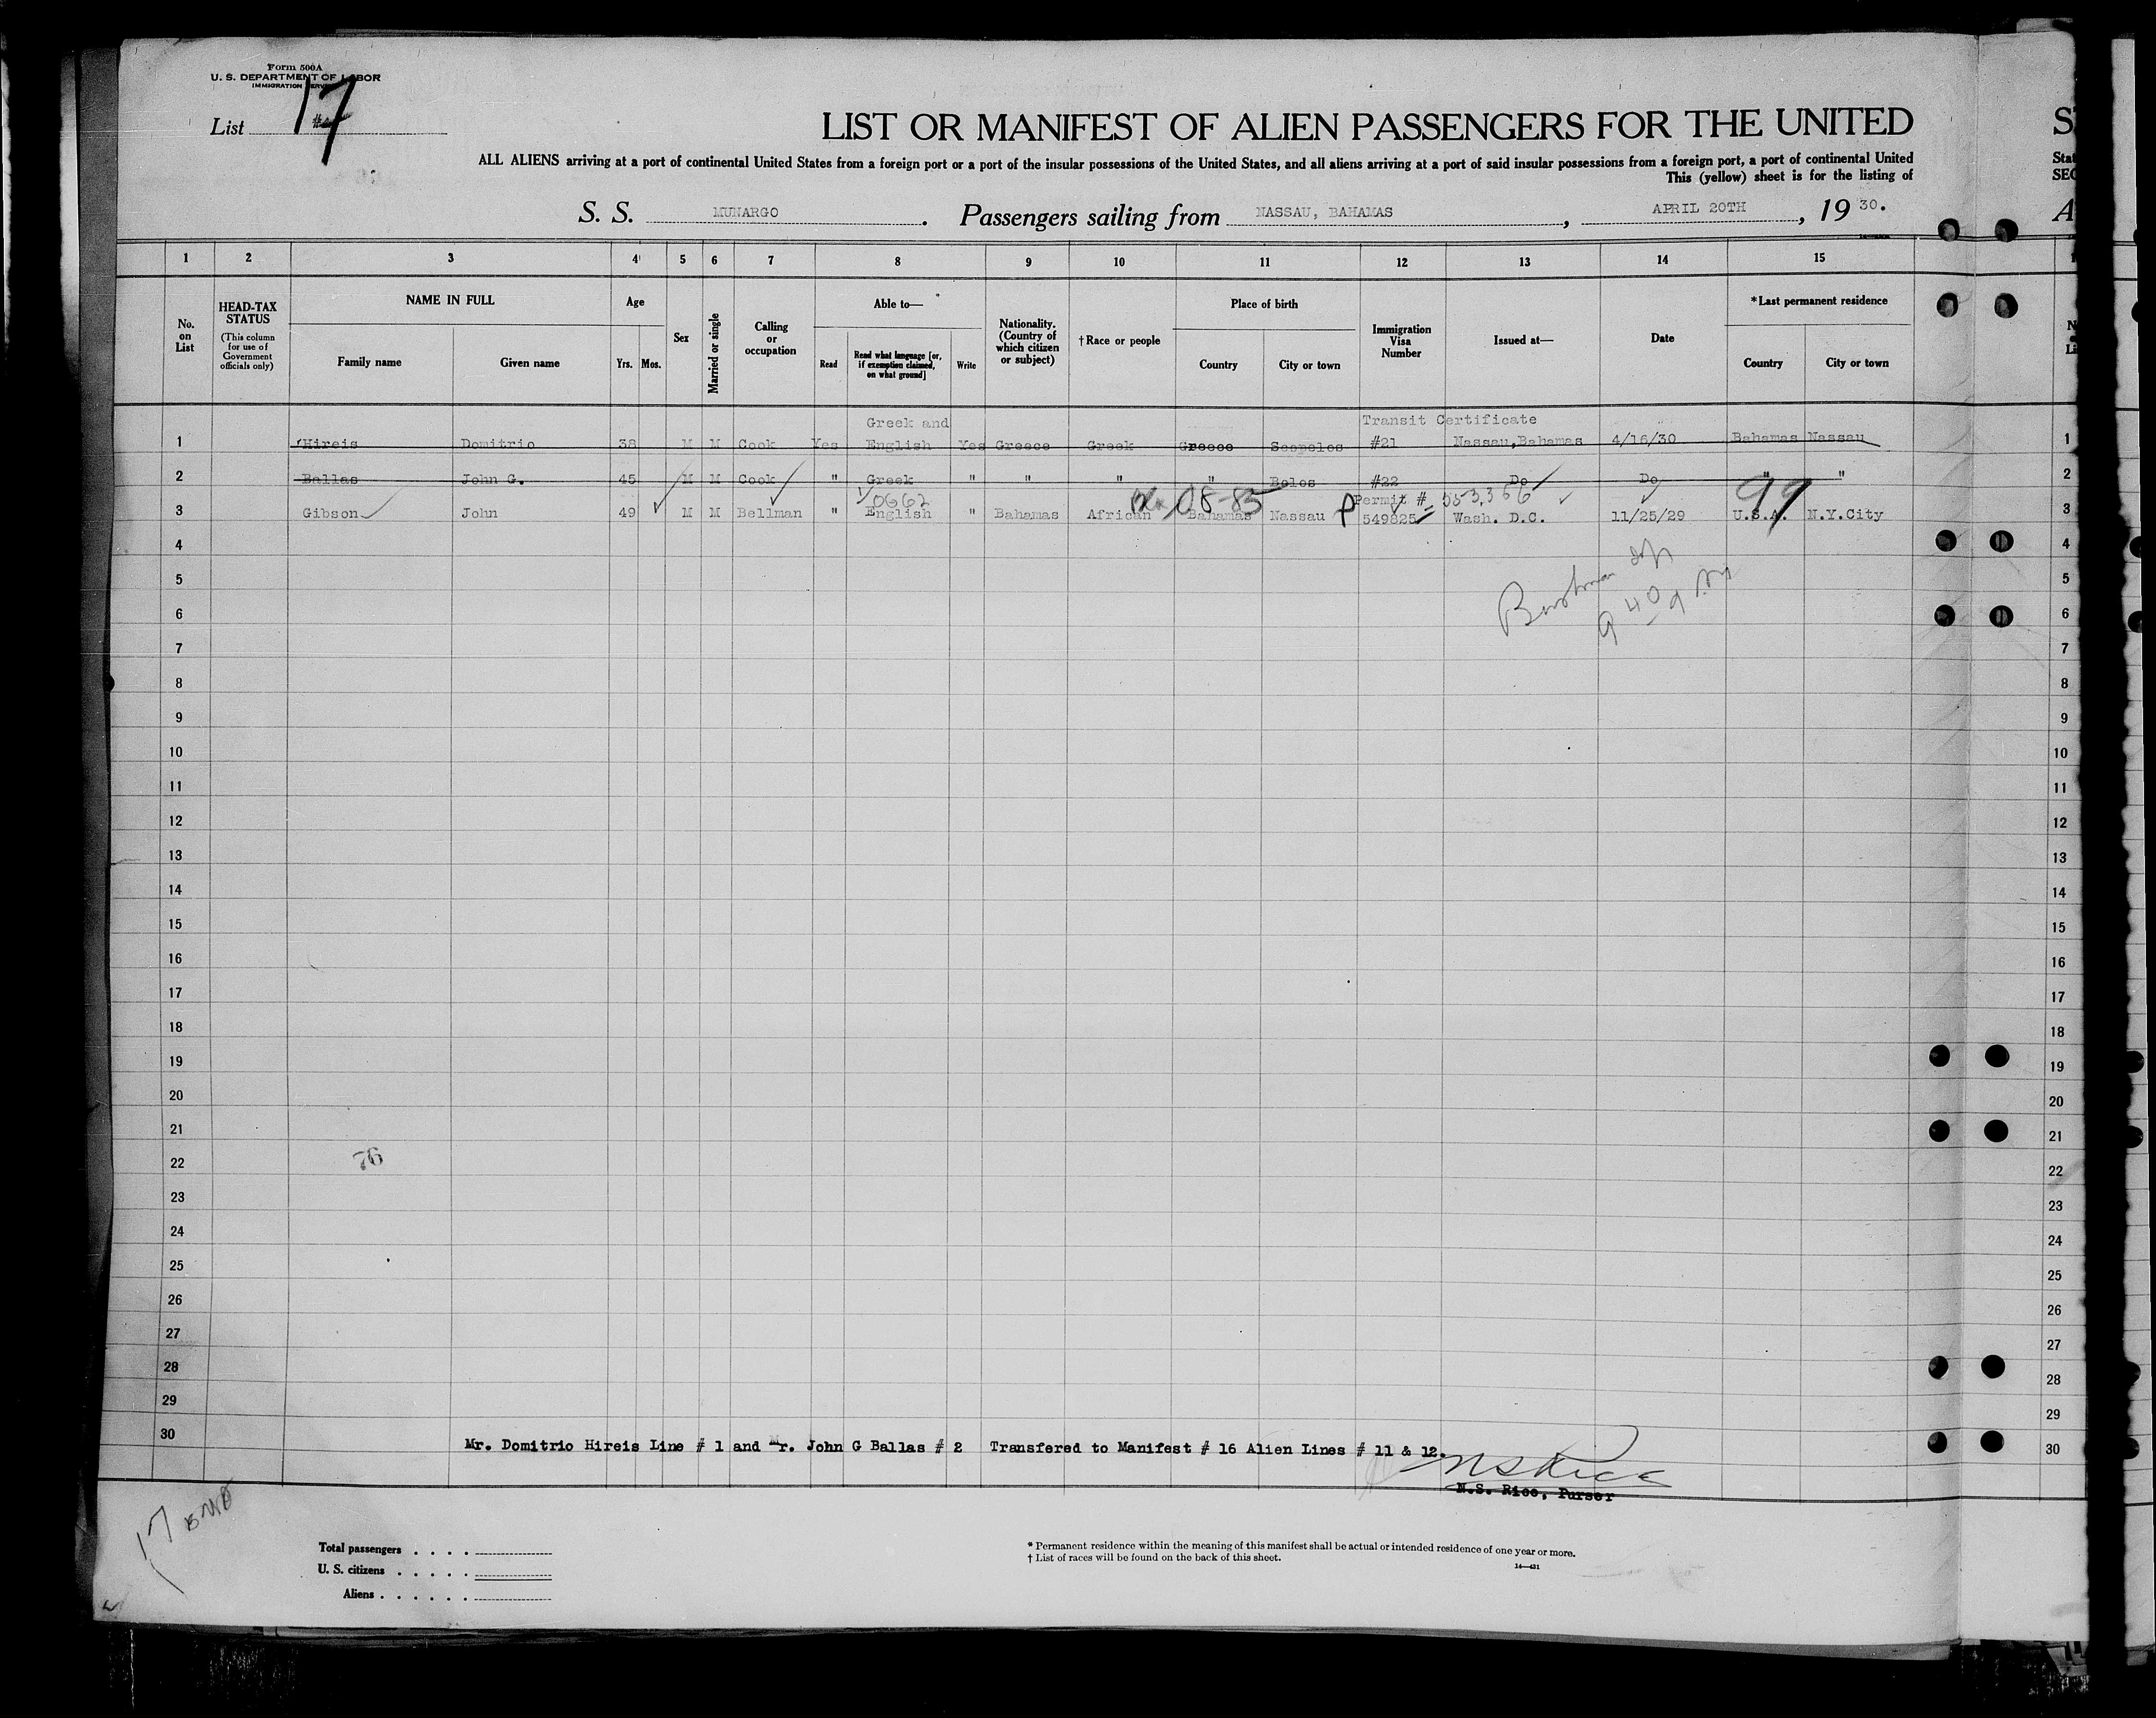 Form 500A
U. S. DEPARTMENT OF LABOR
IMMIGRATION SERVICE
List 17
LIST OR MANIFEST OF ALIEN PASSENGERS FOR THE UNITED
ALL ALIENS arriving at a port of continental United States from a foreign port or a port of the insular possessions of the United States, and all aliens arriving at a port of said insular possessions from a foreign port, a port of continental United
This (yellow) sheet is for the listing of
S. S. MUNARGO. Passengers sailing from NASSAU, BAHAMAS, APRIL 20TH, 1930.
1 2 3 4 5 6 7 8 9 10 11 12 13 14 15
No. on List
HEAD-TAX STATUS
(This column for use of Government officials only)
NAME IN FULL
Family name Given name
Age
Yrs. Mos.
Sex
Married or single
Calling or occupation
Able to—
Read Read what language [or, if exemption claimed, on what ground] Write
Nationality. (Country of which citizen or subject)
†Race or people
Place of birth
Country City or town
Immigration Visa Number
Issued at—
Date
*Last permanent residence
Country City or town
Greek and Transit Certificate
1 Hireis Domitrio 38 M M Cook Yes English Yes Greece Greek Greece Scopelos #21 Nassau,Bahamas 4/16/30 Bahamas Nassau 1
2 Ballas John G. 45 M M Cook " Greek " " " " Bolos #22 Do Do " " 2
0662 08-85 Permit # 553,366 99
3 Gibson John 49 M M Bellman " English " Bahamas African Bahamas Nassau 549825 Wash. D.C. 11/25/29 U.S.A. N.Y.City 3
4 4
5 5
6 6
7 7
8 8
9 9
10 10
11 11
12 12
13 13
14 14
15 15
16 16
17 17
18 18
19 19
20 20
21 21
22 76 22
23 23
24 24
25 25
26 26
27 27
28 28
29 29
30 Mr. Domitrio Hireis Line # 1 and Mr. John G Ballas # 2 Transfered to Manifest # 16 Alien Lines # 11 & 12. 30
NS Rice
N.S. Rice, Purser
17
Total passengers
U. S. citizens
Aliens
* Permanent residence within the meaning of this manifest shall be actual or intended residence of one year or more.
† List of races will be found on the back of this sheet.
14—431